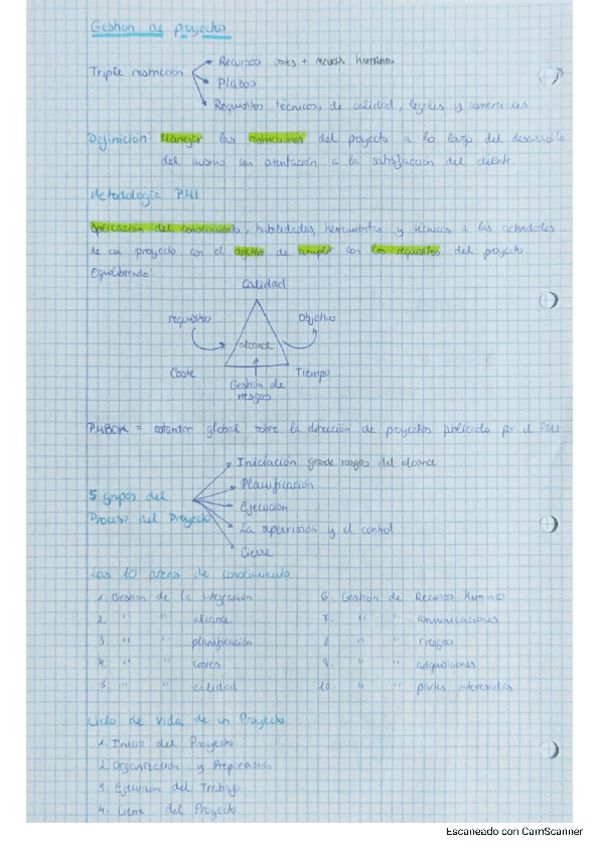 Gestión de proyectos
Recursos costes + recursos humanos
Triple restricción
Plazos
Requisitos técnicos, de calidad, legales y comerciales
Definición: Manejar las restricciones del proyecto a lo largo del desarrollo
del mismo con orientación a la satisfacción del cliente.
Metodología PMI
Aplicación del conocimiento, habilidades, herramientas y técnicas a las actividades
de un proyecto con el objetivo de cumplir con los requisitos del proyecto.
Equilibrado:
Calidad
requisitos
Objetivo
alcance
Coste
Tiempo
Gestión de
riesgos
PMBOK = estandar global sobre la dirección de proyectos publicado por el PMI
Iniciación grandes rasgos del alcance
Planificación
5 grupos del
Ejecución
Proceso del Proyecto
La supervisión y el control
Cierre
Las 10 areas de conocimiento
1. Gestión de la integración
6. Gestión de Recursos Humanos
2. " " alcance
7. " " comunicaciones
3. " " planificación
8. " " riesgos
4. " " costes
9. " " adquisiciones
5. " " calidad
10. " " partes interesadas
Ciclo de vida de un Proyecto
1. Inicio del Proyecto
2. Organización y Preparación
3. Ejecución del Trabajo
4. Cierre del Proyecto
Escaneado con CamScanner